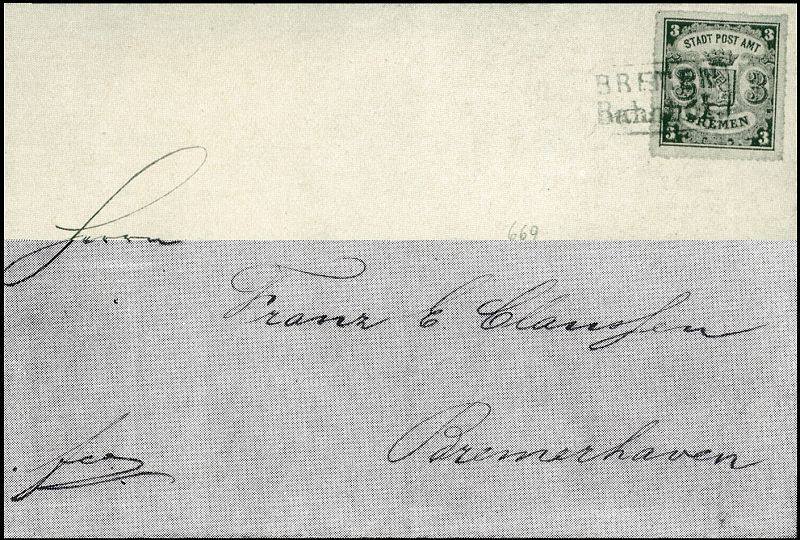 3 3
STADT POST AMT
3 3
BREMEN
3 3
BREMEN
Bahnhof
Herrn
669
Franz E Claussen
Bremerhaven